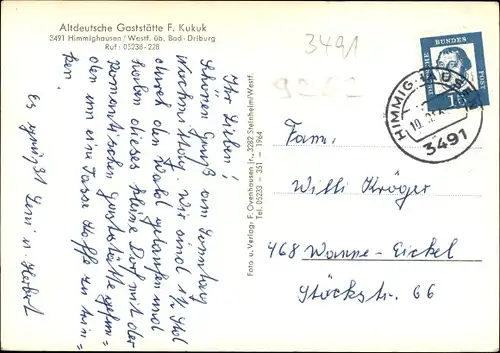 Altdeutsche Gaststätte F. Kukuk
3491 Himmighausen/Westf. üb. Bad-Driburg
Ruf: 05238-228
3491
DEUTSCHE BUNDESPOST
15
HIMMIG
3491
Ihr Lieben!
Schönen Gruß am Sonntag
wir sind 1½ Std
durch den Wald gelaufen und
haben dieses kleine Dorf mit der
romantischen Gaststätte gefun=
den um eine Tasse Kaffe zu trin=
ken.
Es grüßt Leni u. Herbert
Foto u. Verlag: F. Ovenhausen jr., 3282 Steinheim/Westf.
Tel. 05233 - 351 - 1964
Fam.
Willi Kröger
468 Wanne-Eickel
Stöckstr. 66